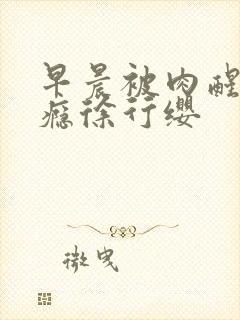 早晨被肉醒
瘾徐行缨
微曳